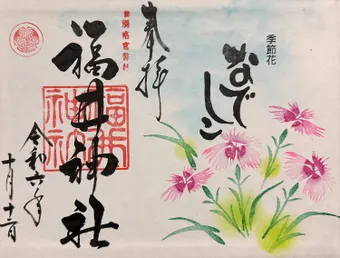 季節花
なでしこ
奉拝
福井神社
福井
神社
令和六年
十月十二日